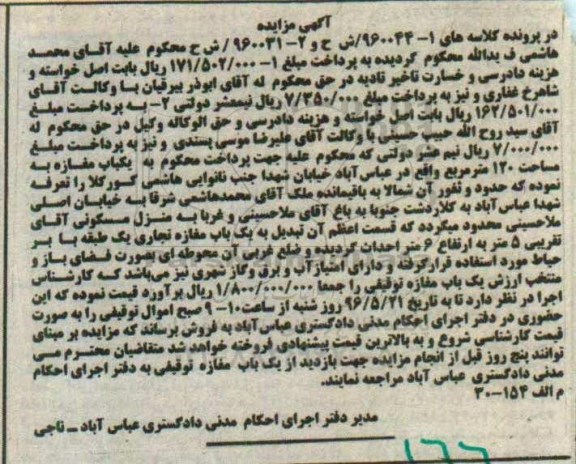 آگهی مزایده
در پرونده کلاسه های ۱- ۹۶۰۰۴۴/ش ح و ۲- ۹۶۰۰۳۱ / ش ح محکوم علیه آقـای محمـد
هاشمی ف یدالله محکوم گردیده به پرداخت مبلغ ۱- ۱۷۱/۵۰۲/۰۰۰ ریال بابت اصل خواسته و
هزینه دادرسی و خسارت تاخیر تادیه در حق محکوم له آقای ابوذر بیرقیان بـا وکـالت آقـای
شاهرخ غفاری و نیز به پرداخت مبلغ ۷/۳۵۰/۰۰۰ ریال نیمعشر دولتی ۲- بـه پـرداخت مبلـغ
۱۶۲/۵۰۱/۰۰۰ ریال بابت اصل خواسته و هزینه دادرسی و حق الوکاله وکیل در حق محکوم له
آقای سید روح الله حبیب حسینی با وکالت آقای علیرضا موسی پسندی و نیز به پرداخت مبلـغ
۷/۰۰۰/۰۰۰ ریال نیم عشر دولتی که محکوم علیه جهت پرداخت محکوم به یکباب مغـازه بـه
مساحت ۱۲۰ مترمربع واقع در عباس آباد خیابان شهدا جنب نانوایی هاشمی کـورکلا را تعرفـه
نموده که حدود و ثغور آن شمالا به باقیمانده ملک آقای محمدهاشمی شرقا بـه خیابـان اصلـی
شهدا عباس آباد به کلاردشت جنوبا به باغ آقای ملاحسینی و غربا بـه منـزل مسکـونی آقـای
ملاحسینی محدود میگردد که قسمت اعظم آن تبدیل به یک باب مغازه تجاری یک طبقه بـا بـر
تقریبی ۵ متر به ارتفاع ۶ متر احداث گردیده و ضلع غربی آن محوطه ای بصورت فـضای بـاز و
حیاط مورد استفاده قرارگرفته و دارای امتیاز آب و برق وگاز شهری نیز می‌باشد کـه کـارشناس
منتخب ارزش یک باب مغازه توقیفی را جمعا ۱/۸۰۰/۰۰۰/۰۰۰ ریال برآورد قیمت نموده که این
اجرا در نظر دارد تا به تاریخ ۹۶/۵/۲۱ روز شنبه از ساعت۱۰- ۹ صبح اموال توقیفی را به صورت
حضوری در دفتر اجرای احکام مدنی دادگستری عباس آباد به فروش برساند که مزایده بر مبنای
قیمت کارشناسی شروع و به بالاترین قیمت پیشنهادی فروخته خواهد شد متقاضیان محتـرم مـی
توانند پنج روز قبل از انجام مزایده جهت بازدید از یک باب مغازه توقیفی به دفتر اجرای احکام
مدنی دادگستری عباس آباد مراجعه نمایند.
م الف ۱۵۴-۳۰
مدیر دفتر اجرای احکام مدنی دادگستری عباس آباد ــ تاجی
۱۶۶